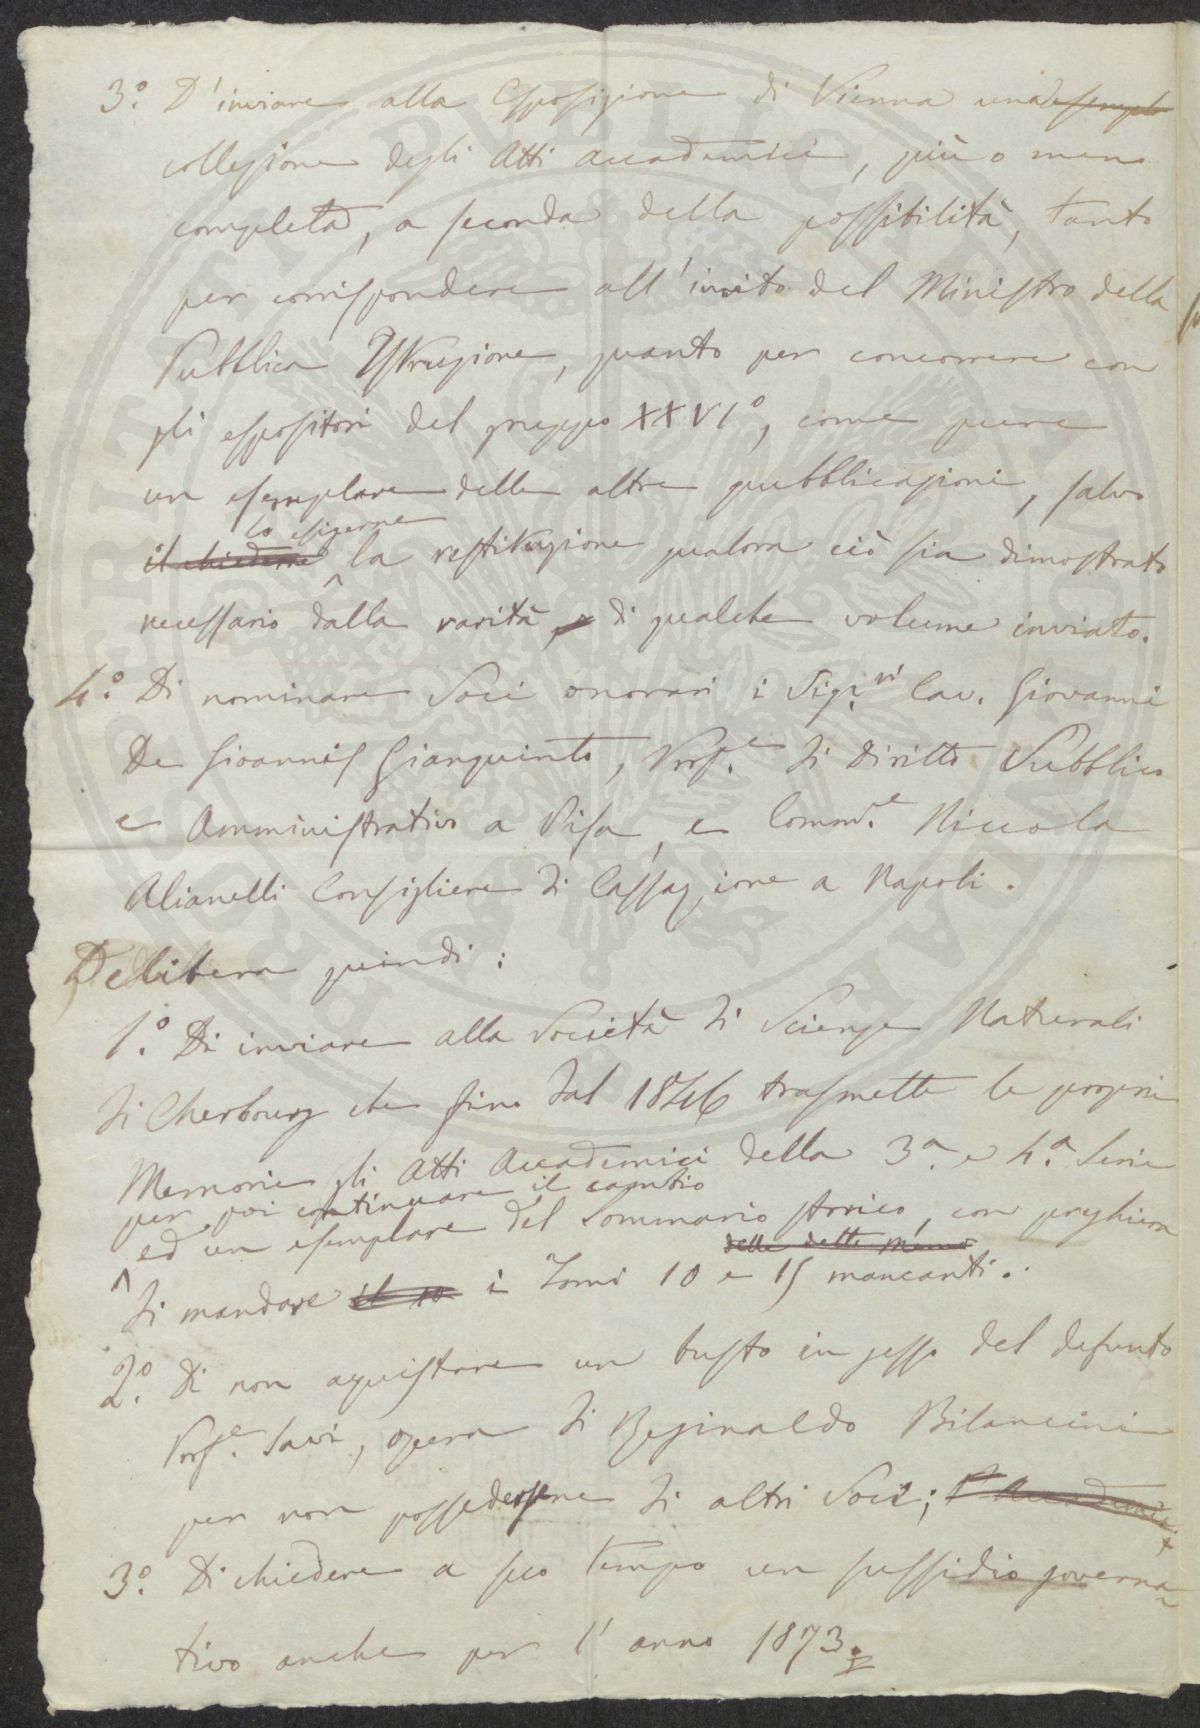 3.º D'inviare alla Esposizione di Vienna una esempla
collezione degli Atti Accademici, più o meno
completa, a seconda della possibilità, tanto
per corrispondere all'invito del Ministro della
Pubblica Istruzione, quanto per concorrere con
gli espositori del gruppo XXVIº, come pure
un esemplare delle altre pubblicazioni, salvo
lo esigerne
il chiederne la restituzione qualora ciò sia dimostrato
necessario dalla rarità, di qualche volume inviato.
4.º Di nominare Soci onorari i Sigri. Cav. Giovanni
De Gioannis Gianquinto, Profe. di Diritto Pubblico
e Amministrativo a Pisa, e Comme. Niccola
Alianelli Consigliere di Cassazione a Napoli.
Delibera quindi:
1.º Di inviare alla Società di Scienze Naturali
di Cherbourg che fino dal 1846 trasmette le proprie
Memorie gli Atti Accademici della 3.ª e 4.ª Serie
per poi continuare il cambio
ed un esemplare del Sommario storico, con preghiera
delle dette Memo
di mandare il 10 i Tomi 10 e 15 mancanti.
2.º Di non aquistare un busto in gesso del defunto
Profe. Savi, opera di Reginaldo Bilancini
per non possederne di altri Soci; l'Accademia
3.º Di chiedere a suo tempo un sussidio governa
tivo anche per l'anno 1873.